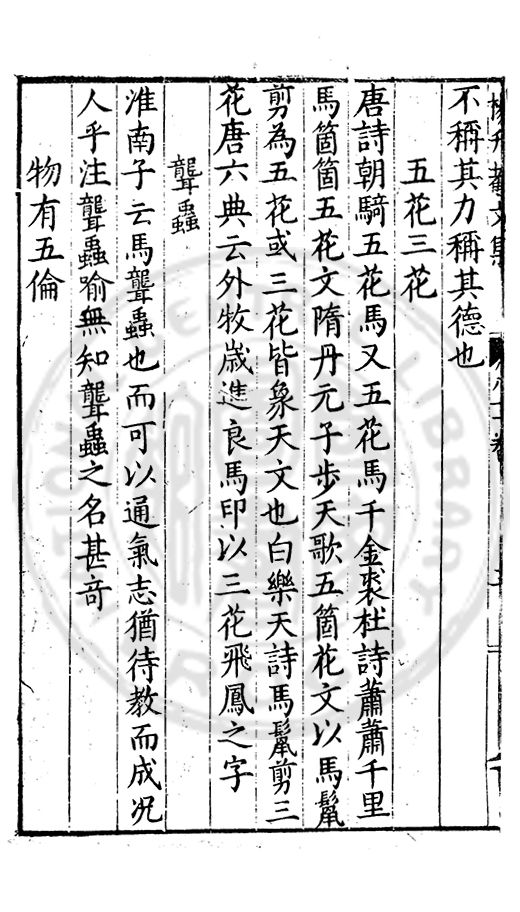 不稱其力稱其德也
五花三花
唐詩朝騎五花馬又五花馬千金裘杜詩蕭蕭千里
馬箇箇五花文隋丹元子步天歌五箇花文以馬鬣
剪為五花或三花皆象天文也白樂天詩馬鬣剪三
花唐六典云外牧歲進良馬印以三花飛鳳之字
聾蟲
淮南子云馬聾蟲也而可以通氣志猶待教而成况
人乎注聾蟲喻無知聾蟲之名甚奇
物有五倫